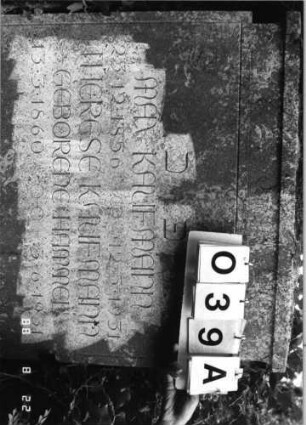 פ נ
MAX KAUFMANN
25.12.1856
THERESE KAUFMANN
GEBORENE
13.5.1860
039A
88 8 22